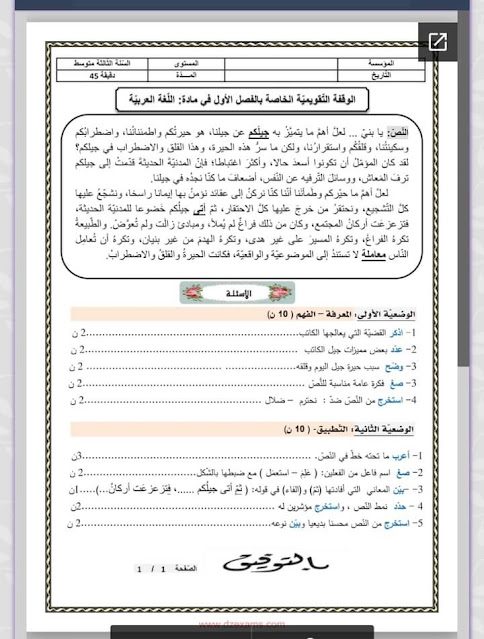 المؤسسة المستوى السنة الثالثة متوسط
التاريخ المــدة 45 دقيقة
الوقفة التقويميّة الخاصة بالفصل الأول في مادة: اللغة العربيّة
النّصّ: يا بنيّ ... لعلّ أهمّ ما يتميّزُ به جيلُكم عن جيلنا، هو حيرتُكم واطمئنانُنا، واضطرابُكم
وسكينتُنا، وقلقُكُم واستقرارُنا، ولكن ما سرُّ هذه الحيرة، وهذا القلق والاضطراب في جيلكم؟
لقد كان المؤمّل أن تكونوا أسعدَ حالا، وأكثرَ اغتباطا؛ فإنّ المدنيّة الحديثة قدّمتْ إلى جيلكم
ترفَ المَعاش، ووسائلَ التّرفيه عن النّفس، أضعافَ ما كنّا نجدُه في جيلنا.
لعلّ أهمّ ما حيّركم وطمأننا أنّنا كنّا نركنُ إلى عقائد نؤمنُ بها إيمانا راسخا، ونشجّعُ عليها
كلّ التّشجيع، ونحتقرُ من خرجَ عليها كلّ الاحتقار، ثمّ أتى جيلُكم خضوعا للمدنيّة الحديثة،
فتزعزعت أركانُ المجتمع، وكان من ذلك فراغٌ لم يُملأ، ومبادئ زالت ولم تُعوَّضْ. والطّبيعةُ
تكرهُ الفراغَ، وتكرهُ المسيرَ على غير هدى، وتكرهُ الهدمَ من غير بنيان، وتكرهُ أن تُعامل
النّاس معاملةً لا تستندُ إلى الموضوعيّة والواقعيّة، فكانت الحيرةُ والقلقُ والاضطرابُ.
الأسئلة
الوضعيّة الأولى: المعرفة – الفهم ( 10 ن)
1- اذكر القضيّة التي يعالجها الكاتب..........2 ن
2- عدّد بعض مميزات جيل الكاتب ..........2 ن
3- وضّح سبب حيرة جيل اليوم وقلقه.......... 2 ن
3- صغ فكرة عامة مناسبة للنّصّ ..........2 ن
4- استخرج من النّصّ ضدّ : نحترم – ضلال ..........2 ن
الوضعيّة الثانية: التّطبيق- ( 10 ن)
1- أعرب ما تحته خطّ في النّصّ. ..........3ن
2- صغ اسم فاعل من الفعلين: ( عَلِمَ – استعمل ) مع ضبطها بالشّكل..........2 ن
3 -بيّن المعاني التي أفادتها (ثمّ) و(الفاء) في قوله: ( ثمّ أتى جيلُكم ......، فتزعزعت أركانُ...)......1ن
4 - حدّد نمط النّص ، واستخرج مؤشرين له ..........2ن
5- استخرج من النّص محسنا بديعيا وبيّن نوعه..........2 ن
بالتوفيق
الصّفحة 1 / 1
www.dzexams.com